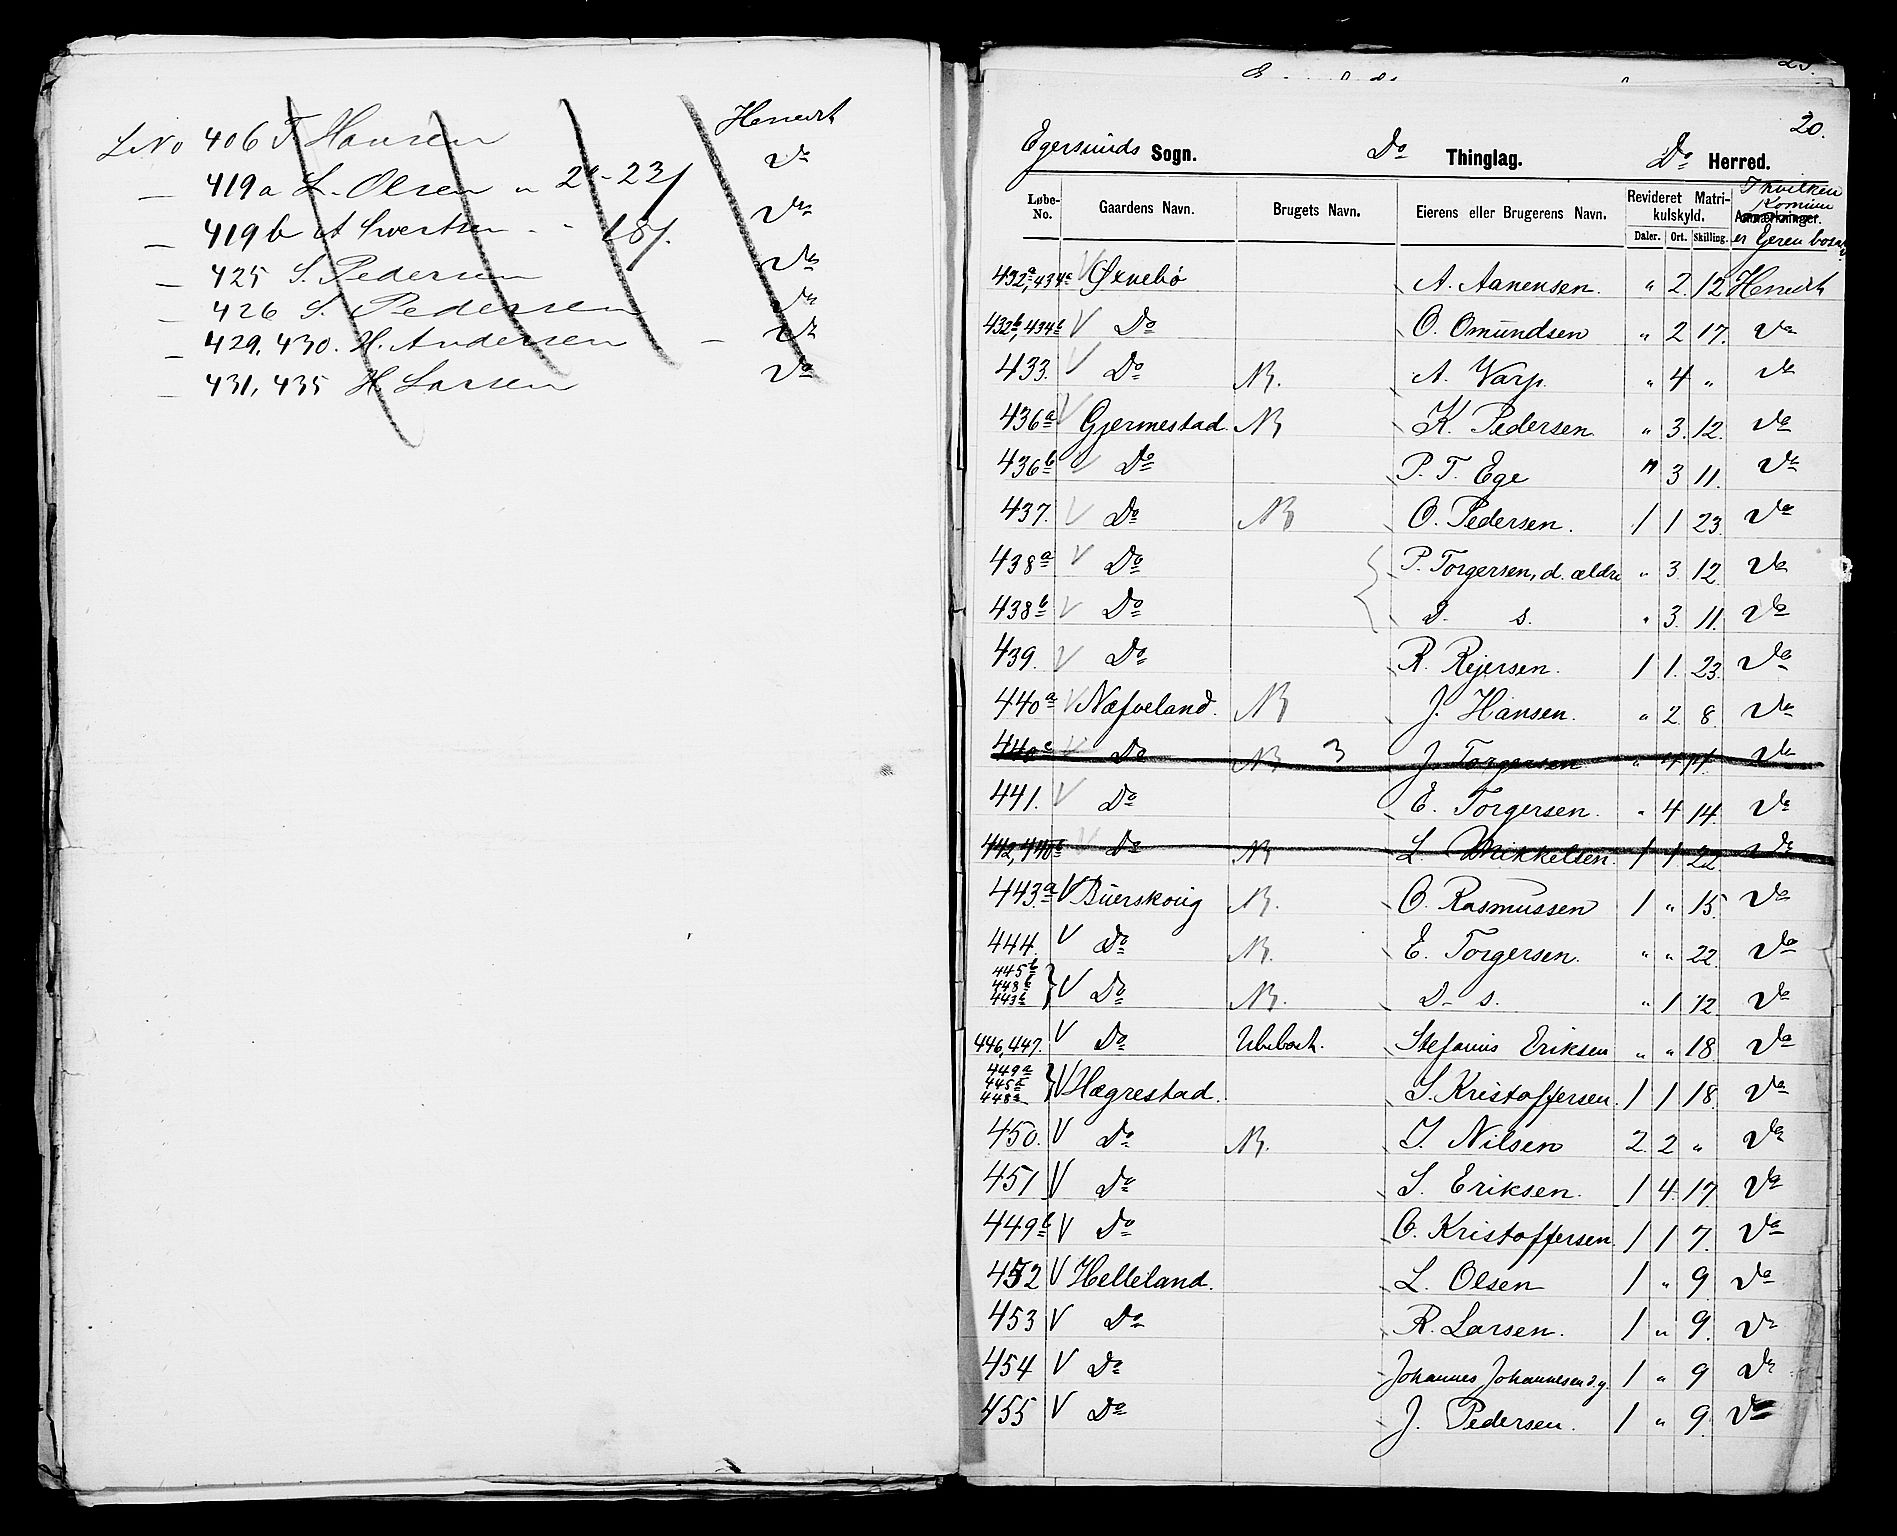 LNo 406 T. Hansen Heneidt
— 419a L. Olsen " 2 - 23 Do
— 419b A Sivertsen " " 18 Do
— 425 S. Pedersen Do
— 426 S. Pedersen Do
— 429, 430. H. Andersen — Do
— 431, 435 H Larsen Do
20.
Egersunds Sogn. Do Thinglag. Do Herred.
Løbe-No. Gaardens Navn. Brugets Navn. Eierens eller Brugerens Navn. Revideret Matrikulskyld. Anmærkninger. I hvilken Komune er Eieren bosat
Daler. Ort. Skilling.
432a, 434a V Ørnebø A. Aanensen. " 2. 12 Heneidt
432b, 434b V Do O. Omundsen " 2 17. Do
433. V Do NB. A. Varp. " 4 " Do
436a V Gjermestad. NB K. Pedersen " 3. 12. Do
436b V Do P. T. Ege " 3 11. Do
437. V Do NB O. Pedersen. 1 1 23. Do
438a V Do P. Torgersen, d. ældre " 3. 12. Do
438b V Do D. s. " 3. 11. Do
439. V Do R. Rejersen. 1 1. 23. Do
440a V Næfveland. NB J. Hansen. " 2. 8. Do
440c V Do NB 3 J. Torgersen " 4 14. Do
441. V Do E. Torgersen. " 4 14. Do
442, 440b V Do NB L. Mikkelsen. 1 1 22 Do
443a V Buerskoug NB. O. Rasmussen 1 " 15. Do
444. V Do NB. E. Torgersen. " " 22. Do
445b 448b 443b } V Do NB. D- s. " 1 12 Do
446, 447. V Do Ubeboet. Stefanus Eriksen " " 18 Do
449a 445a 448a } V Hægrestad. S. Kristoffersen. 1 1 18. Do
450. V Do NB. T. Nilsen 2. 2 " Do
451 V Do S. Eriksen. 1 4. 17. Do
449b V Do O. Kristoffersen. 1 1 7. Do
452 V Helleland. L. Olsen 1 " 9. Do
453 V Do R. Larsen. 1 " 9. Do
454 V Do Johannes Johannesen d.y. 1 " 9 Do
455 V Do J. Pedersen. 1 " 9. Do